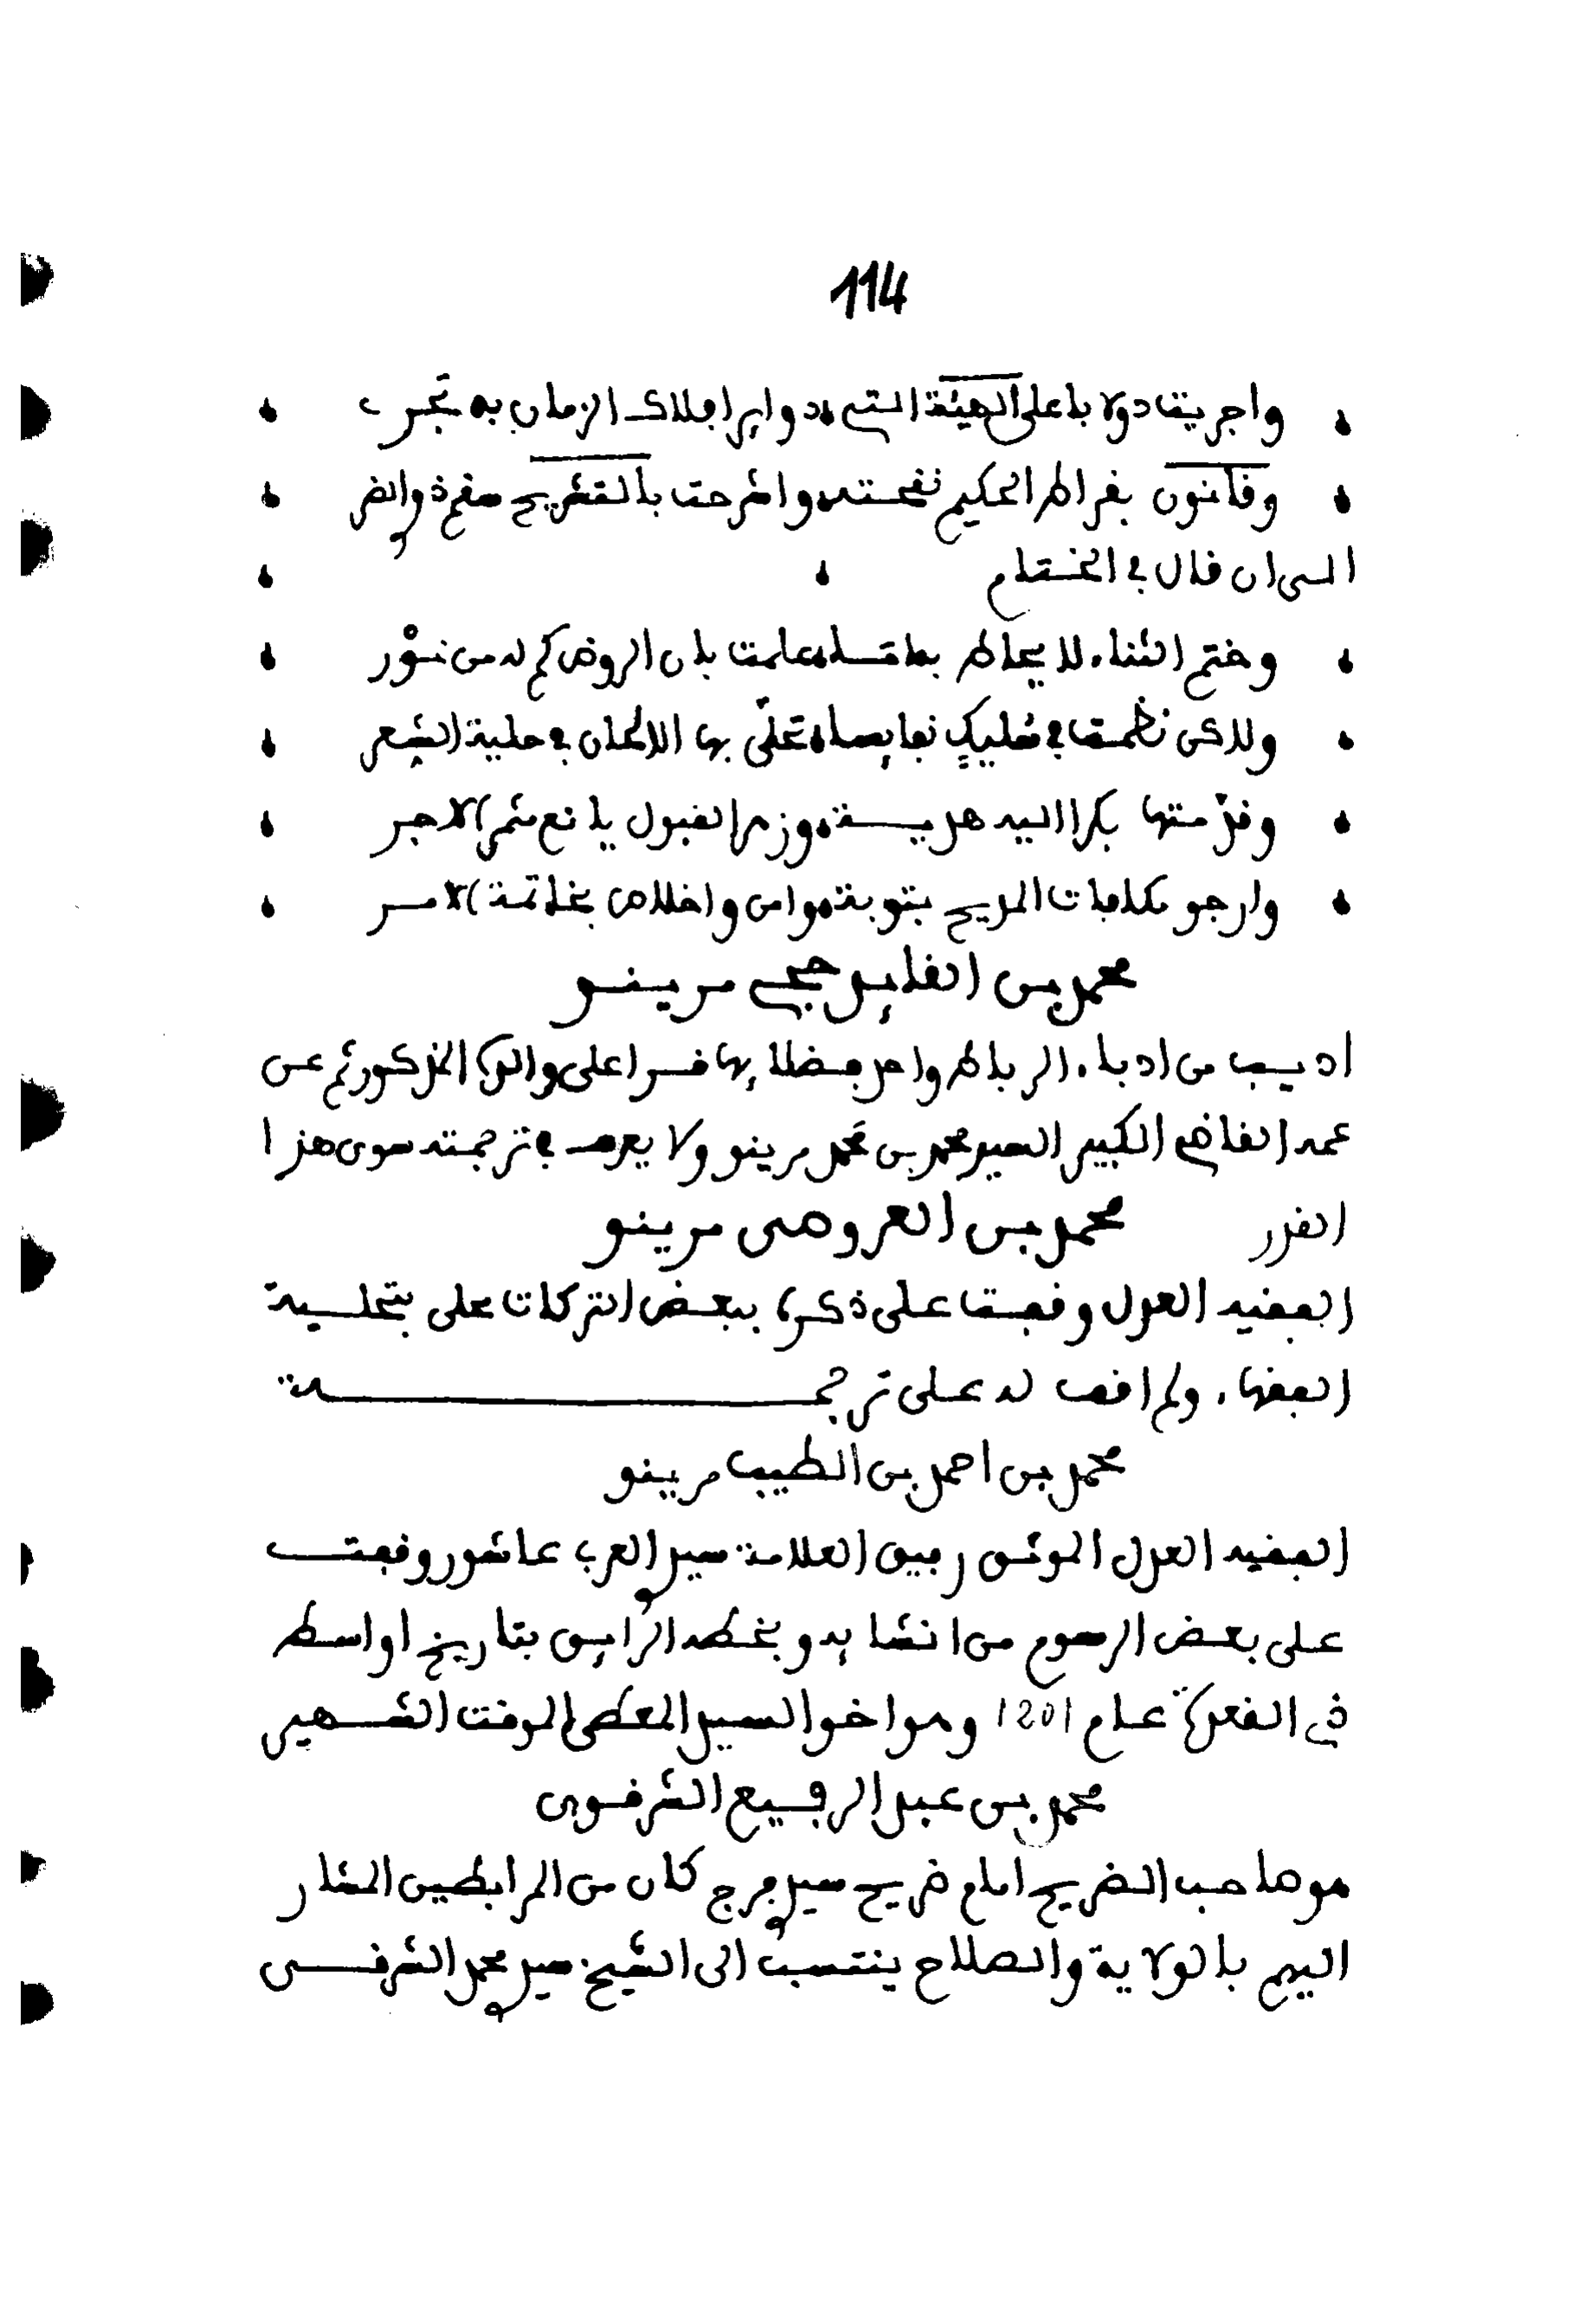 114
واجريت دولابا على الهيئة التي • دواير افلاك الزمان به تجر
وقانون بقراط الحكيم نقحته • واشرحت بالتشريح صفرة والضر
الى ان قال في الختام
وختم الثناء لا يحاط بعا • علمت بان الروض كم له من نَوْر
وللاكن نظمت في مُليكٍ نفايسا • تحلّى بها الالحان في حلية الشعر
وقدّمتها بكرا اليه هدية • وزهر القبول يانع ثمر الاجر
وارجو مكافات المديح بتوبة • وامن واخلاص بخاتمة الامر
محمد بن القايد حجي مرينو
اديب من ادباء الرباط واحد فضلايها قرا على والده المذكور ثم عن
عمه القاضي الكبير السيد محمد بن محمد مرينو ولا يعرف في ترجمته سوى هذا
القدر
محمد بن العروصى مرينو
الفقيه العدل وقفت على ذكره ببعض التركات على بتحلية
الفقهاء ولم اقف له على ترجمة
محمد بن احمد بن الطيب مرينو
الفقيه العدل الموثق رفيق العلامة سيدي العربي عاشور وقفت
على بعض الرسوم من انشايه وبخطه الرايق بتاريخ اواسط
ذي القعدة عام 1201 وهو اخو السيد المعطي الموقت الشهير
محمد بن عبد الرفيع الشرقوى
هو صاحب الضريح امام ضريح سيدي فرج كان من المرابطين المشار
اليهم بالولاية والصلاح ينتسب الى الشيخ سيدي محمد الشرقي